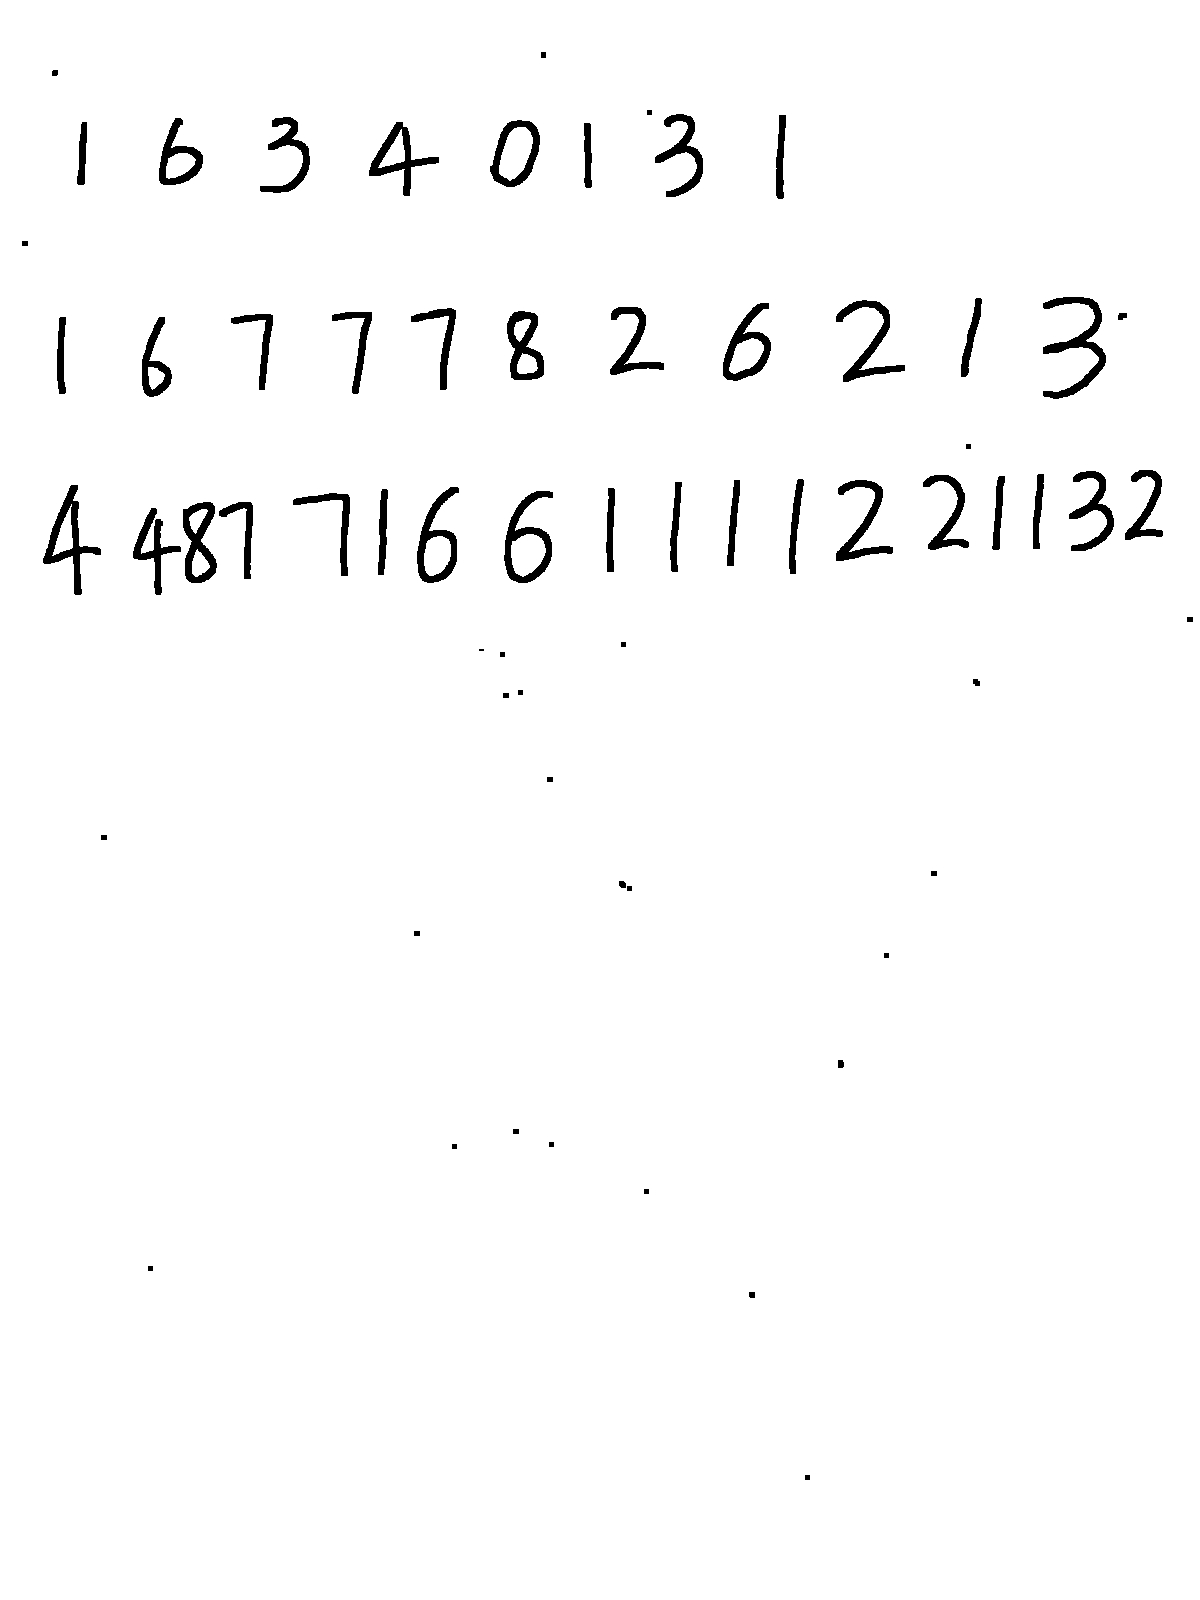 1 6 3 4 0 1 3 1
1 6 7 7 7 8 2 6 2 1 3
4 487 7166 1 1 1 1 2 21132